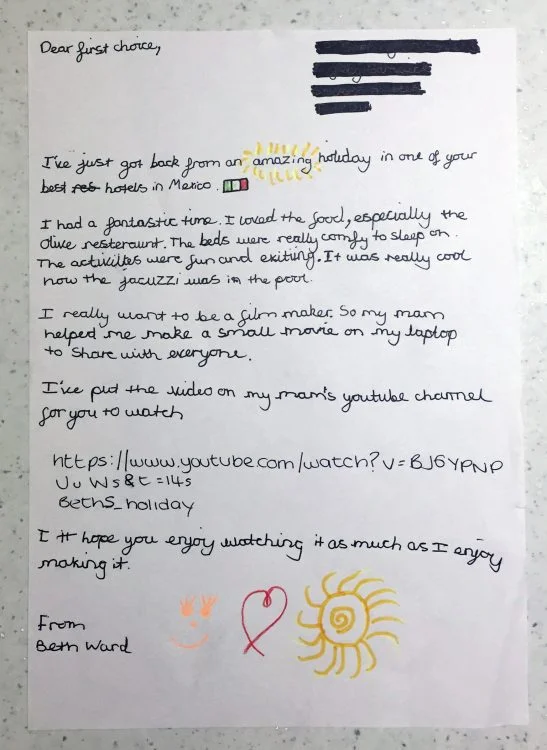 Dear first choice,
I've just got back from an amazing holiday in one of your
best res hotels in Mexico.
I had a fantastic time. I loved the food, especially the
olive resteraunt. The beds were really comfy to sleep on.
The activities were fun and exiting. It was really cool
how the jacuzzi was in the pool.
I really want to be a film maker. So my mam
helped me make a small movie on my laptop
to share with everyone.
I've put the video on my mam's youtube channel
for you to watch
https://www.youtube.com/watch?v=BJ6YPNP
UvWs&t=14s
BethS_holiday
I hope you enjoy watching it as much as I enjoy
making it.
From
Beth Ward